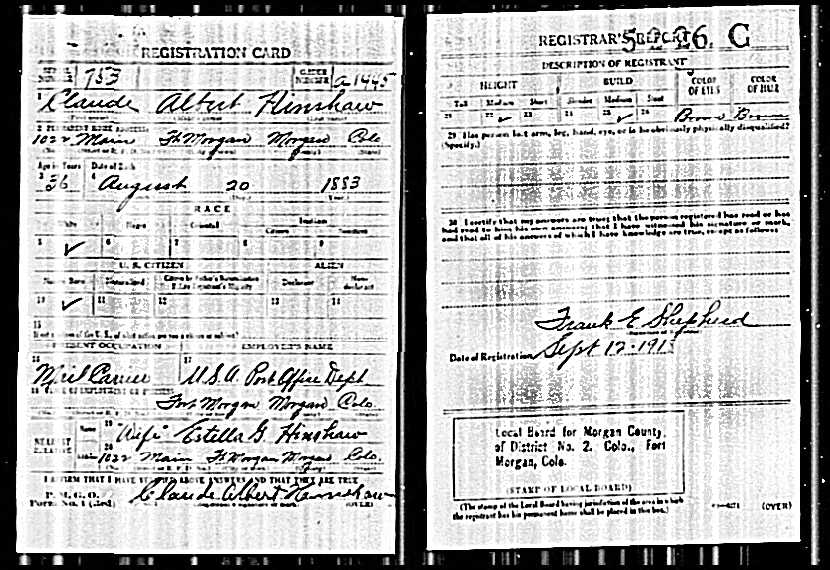 REGISTRATION CARD
NUMBER 753 ORDER NUMBER a1445
1 Claude Albert Hinshaw
2 PERMANENT HOME ADDRESS
1022 Main Ft Morgan Morgan Colo
Age in Years Date of Birth
3 36 4 August 20 1883
RACE
White Negro Oriental Indian
Citizen
5 ✓ 6 7 8 9
U. S. CITIZEN ALIEN
Native Born Naturalized Citizen by Father's Naturalization Declarant Non-declarant
Before Registrant's Majority
10 ✓ 11 12 13 14
15
PRESENT OCCUPATION EMPLOYER'S NAME
16 Mail Carrier 17 U.S.A. Post Office Dept
18 PLACE OF EMPLOYMENT OR
Fort Morgan Morgan Colo.
NEAREST RELATIVE Name 19 Wife Estella G. Hinshaw
20 1022 Main Ft Morgan Morgan Colo.
I AFFIRM THAT I HAVE VERIFIED ABOVE ANSWERS AND THAT THEY ARE TRUE
P. M. G. O.
Form No. 1 (Red) Claude Albert Hinshaw (OVER)
REGISTRAR'S REPORT 5-2-26. C
DESCRIPTION OF REGISTRANT
HEIGHT BUILD COLOR OF EYES COLOR OF HAIR
Tall Medium Short Slender Medium Stout
21 22 ✓ 23 24 25 ✓ 26 Brown Brown
29 Has person lost arm, leg, hand, eye, or is he obviously physically disqualified?
(Specify.)
30 I certify that my answers are true; that the person registered has read or has
had read to him his own answers; that I have witnessed his signature or mark,
and that all of his answers of which I have knowledge are true, except as follows:
Frank E Shepherd
Date of Registration Sept 12 - 191
Local Board for Morgan County,
of District No. 2. Colo., Fort
Morgan, Colo.
(STAMP OF LOCAL BOARD)
(The stamp of the Local Board having jurisdiction of the area in which
the registrant has his permanent home shall be placed in this box.)
(OVER)